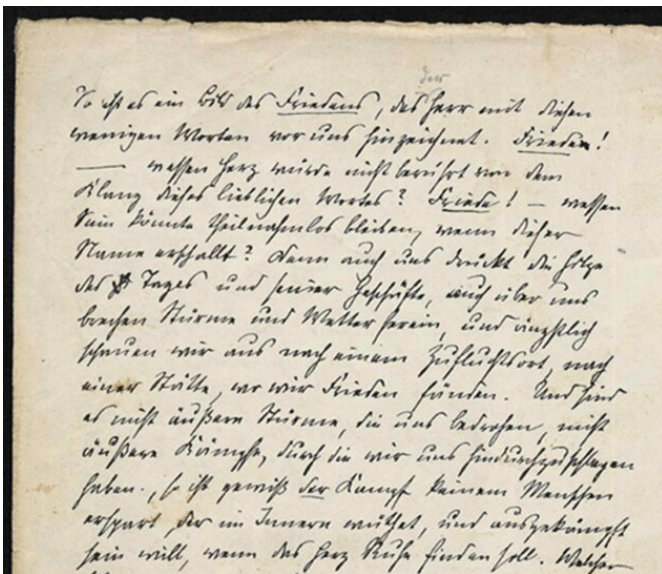 der
So ist es ein Bild des Friedens, das Herr mit diesen
wenigen Worten vor uns hinzeichnet. Frieden!
— wessen Herz würde nicht berührt von dem
Klang dieses lieblichen Wortes? Friede! — wessen
Sinn könnte theilnahmlos bleiben, wenn dieser
Name erschallt? Denn auch uns drückt die Hitze
des Tages und seiner Geschäfte, auch über uns
brechen Stürme und Wetter herein, und ängstlich
schauen wir aus nach einem Zufluchtsort, nach
einer Stätte, wo wir Frieden fänden. Und sind
es nicht äußere Stürme, die uns bedrohen, nicht
äußere Kämpfe, durch die wir uns hindurchzuschlagen
haben, so ist gewiß der Kampf keinem Menschen
erspart, der im Innern wüthet, und ausgekämpft
sein will, wenn das Herz Ruhe finden soll. Welcher